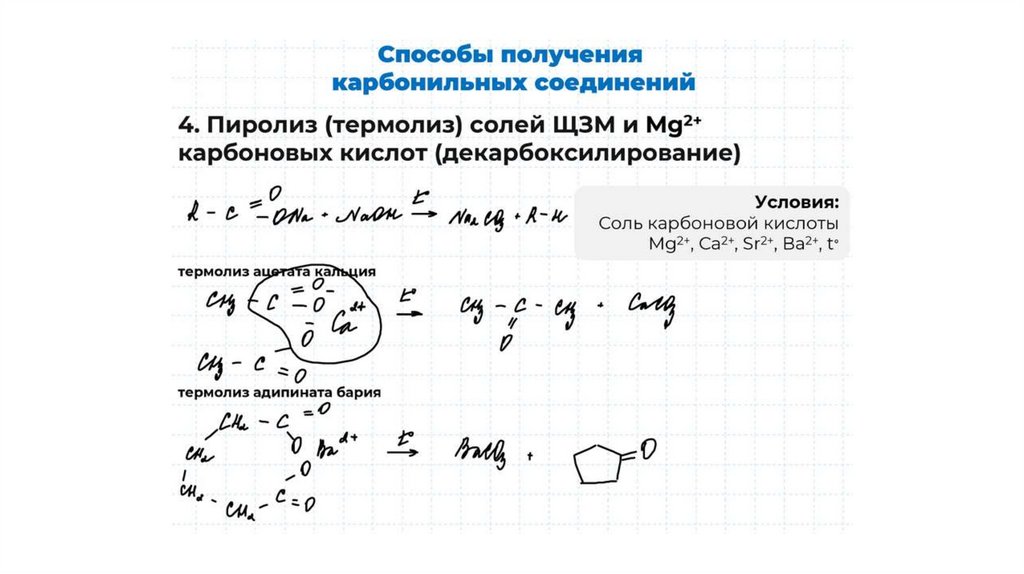 Способы получения
карбонильных соединений
4. Пиролиз (термолиз) солей ЩЗМ и Mg²⁺
карбоновых кислот (декарбоксилирование)
Условия:
Соль карбоновой кислоты
Mg²⁺, Ca²⁺, Sr²⁺, Ba²⁺, t°
R - C = O - ONa + NaOH t° → Na₂CO₃ + R - H
термолиз ацетата кальция
CH₃ - C = O - O⁻ Ca²⁺ t° → CH₃ - C - CH₃ + CaCO₃
⁻O = O
CH₃ - C = O
термолиз адипината бария
CH₂ - C = O
CH₂ O Ba²⁺ t° → BaCO₃ + = O
CH₂ - O
CH₂ - C = O